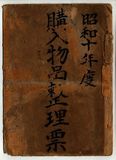 昭和十年度
購入物品整理票